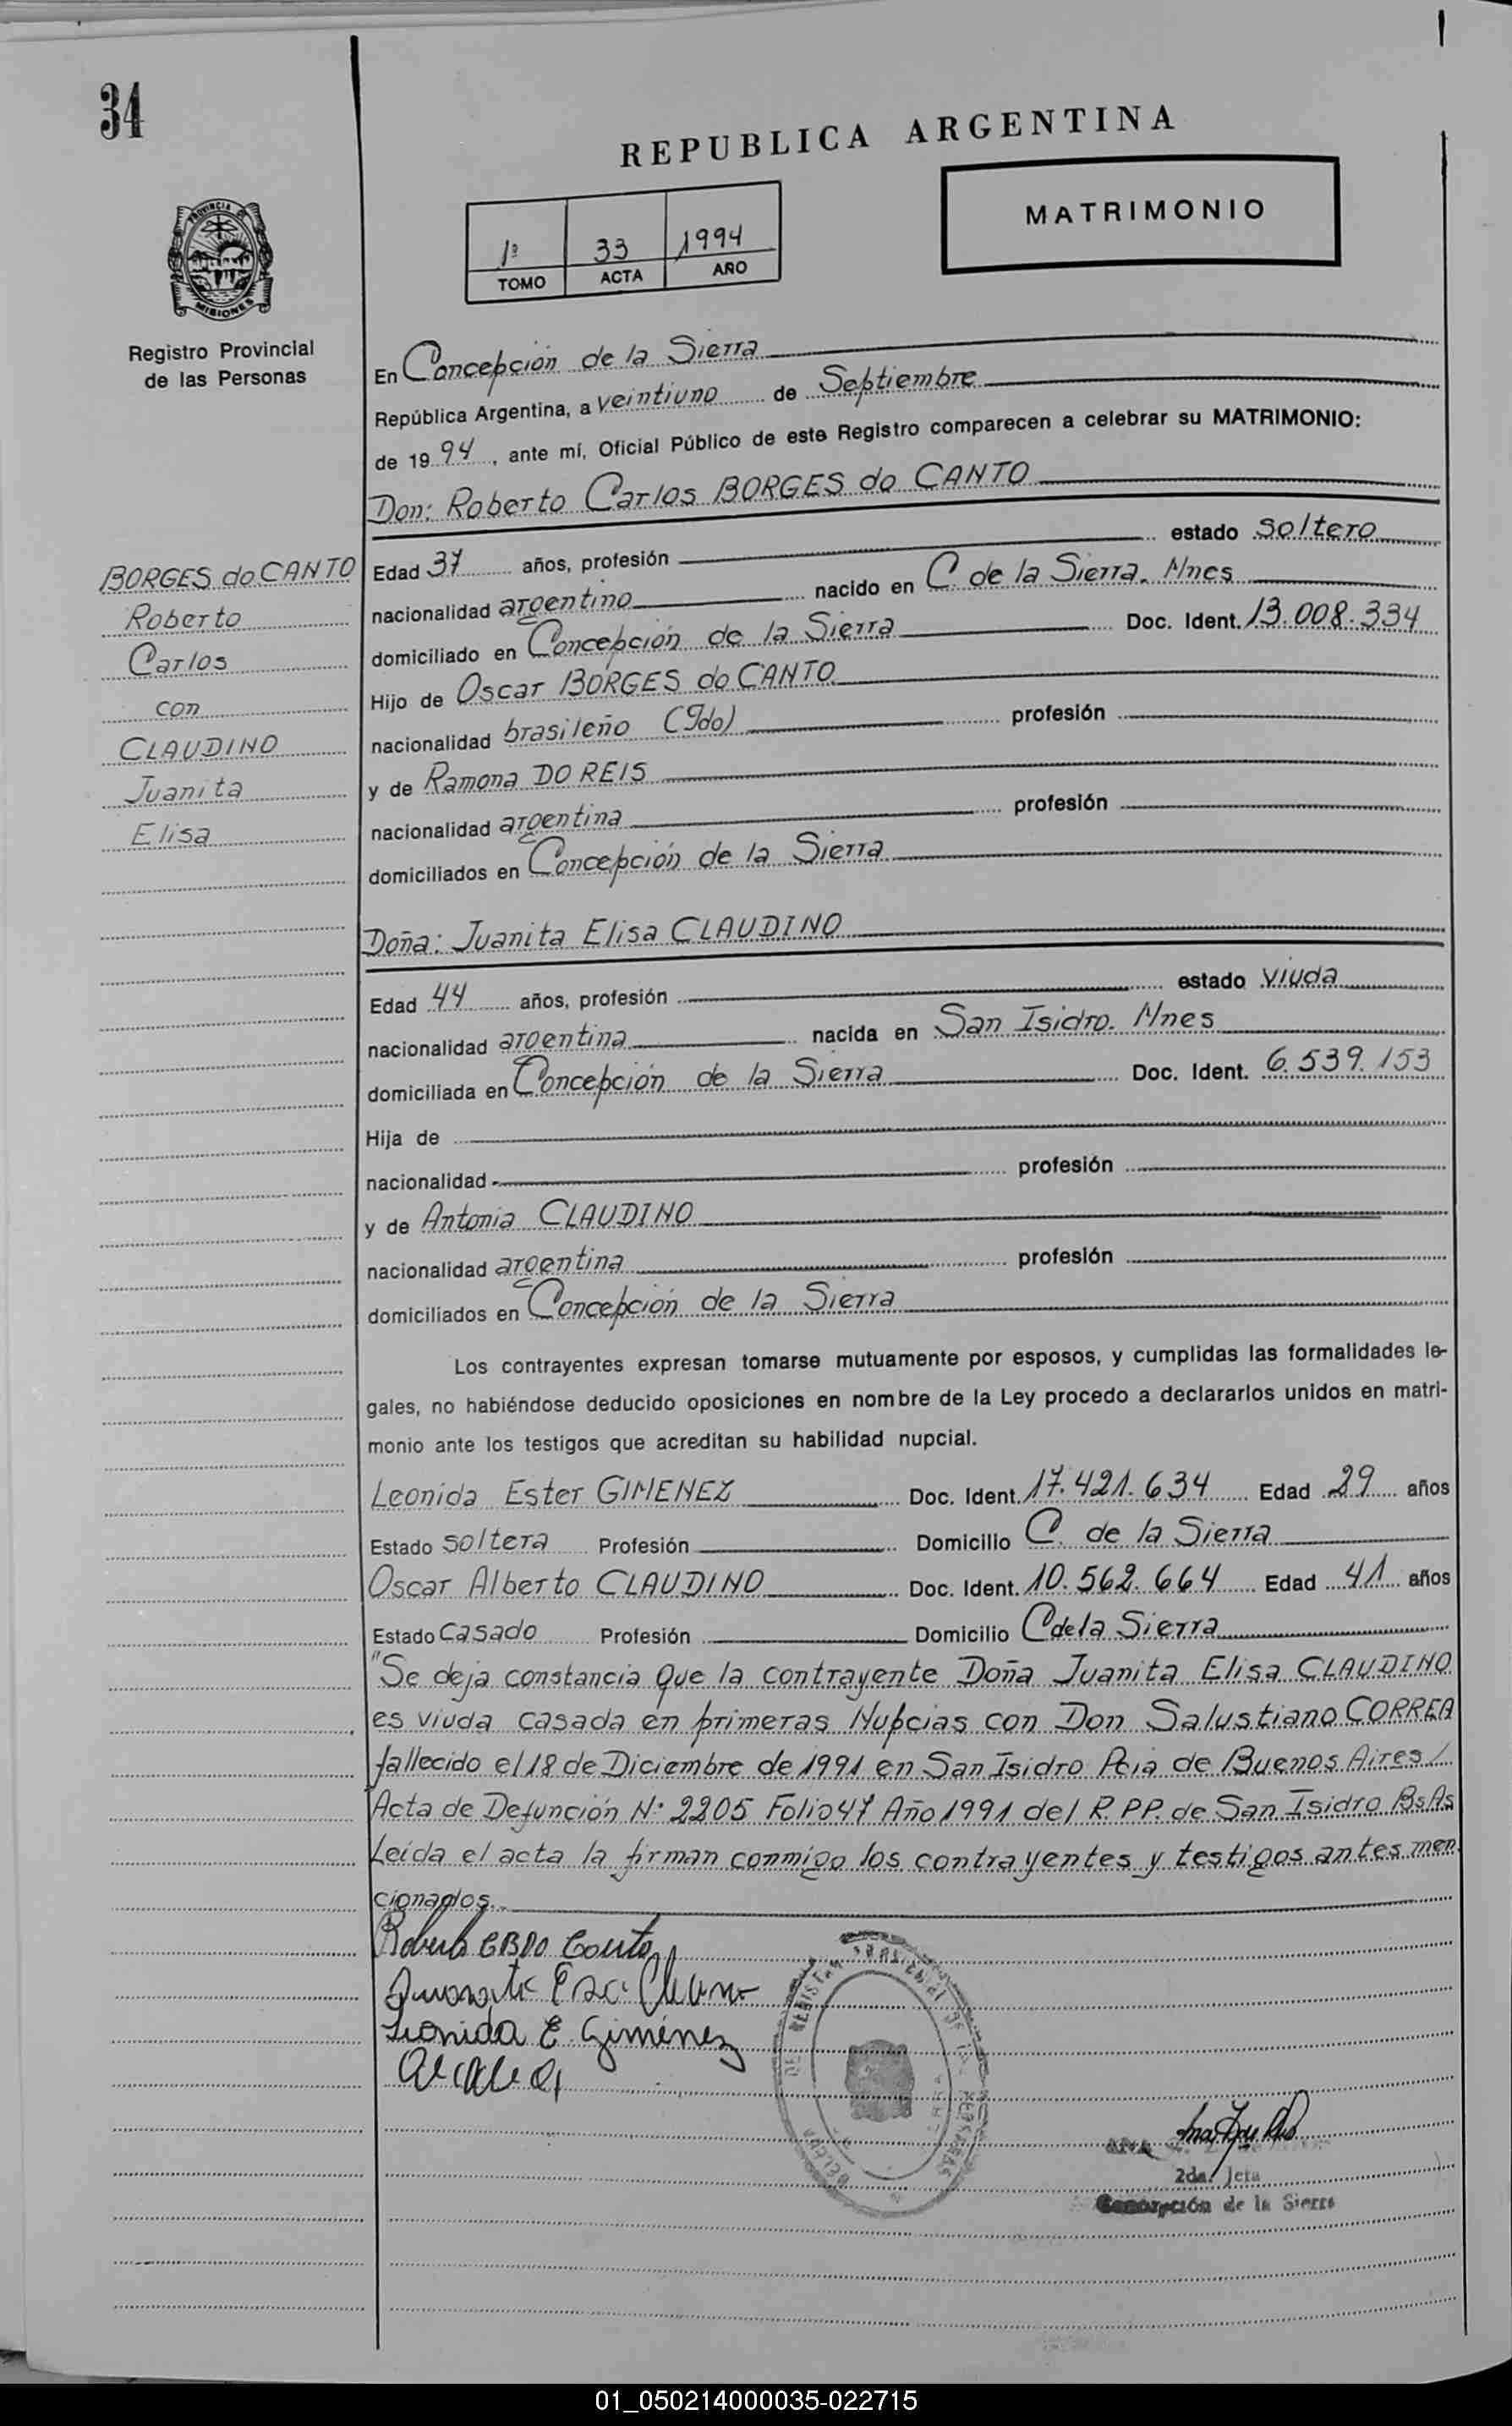 34
REPUBLICA ARGENTINA
MATRIMONIO
1º 33 1994
TOMO ACTA AÑO
PROVINCIA DE
MISIONES
Registro Provincial
de las Personas
En Concepción de la Sierra
República Argentina, a veintiuno de Septiembre
de 1994, ante mí, Oficial Público de este Registro comparecen a celebrar su MATRIMONIO:
Don: Roberto Carlos BORGES do CANTO
BORGES do CANTO
Roberto
Carlos
con
CLAUDINO
Juanita
Elisa
Edad 37 años, profesión estado soltero
nacionalidad argentino nacido en C. de la Sierra. Mnes
domiciliado en Concepción de la Sierra Doc. Ident. 13.008.334
Hijo de Oscar BORGES do CANTO
nacionalidad brasileño (Fdo) profesión
y de Ramona DO REIS
nacionalidad argentina profesión
domiciliados en Concepción de la Sierra
Doña: Juanita Elisa CLAUDINO
Edad 44 años, profesión estado viuda
nacionalidad argentina nacida en San Isidro. Mnes
domiciliada en Concepción de la Sierra Doc. Ident. 6.539.153
Hija de
nacionalidad profesión
y de Antonia CLAUDINO
nacionalidad argentina profesión
domiciliados en Concepción de la Sierra
Los contrayentes expresan tomarse mutuamente por esposos, y cumplidas las formalidades le-
gales, no habiéndose deducido oposiciones en nombre de la Ley procedo a declararlos unidos en matri-
monio ante los testigos que acreditan su habilidad nupcial.
Leonida Ester GIMENEZ Doc. Ident. 17.421.634 Edad 29 años
Estado soltera Profesión Domicilio C. de la Sierra
Oscar Alberto CLAUDINO Doc. Ident. 10.562.664 Edad 41 años
Estado Casado Profesión Domicilio C de la Sierra
"Se deja constancia que la contrayente Doña Juanita Elisa CLAUDINO
es viuda casada en primeras Nupcias con Don Salustiano CORREA
fallecido el 18 de Diciembre de 1991 en San Isidro Pcia de Buenos Aires/
Acta de Defunción Nº 2205 Folio 47 Año 1991 del R.PP. de San Isidro BsAs
Leída el acta la firman conmigo los contrayentes y testigos antes men
cionados.
Leonida E. Giménez
2da. Jefa
Concepción de la Sierra
01_050214000035-022715